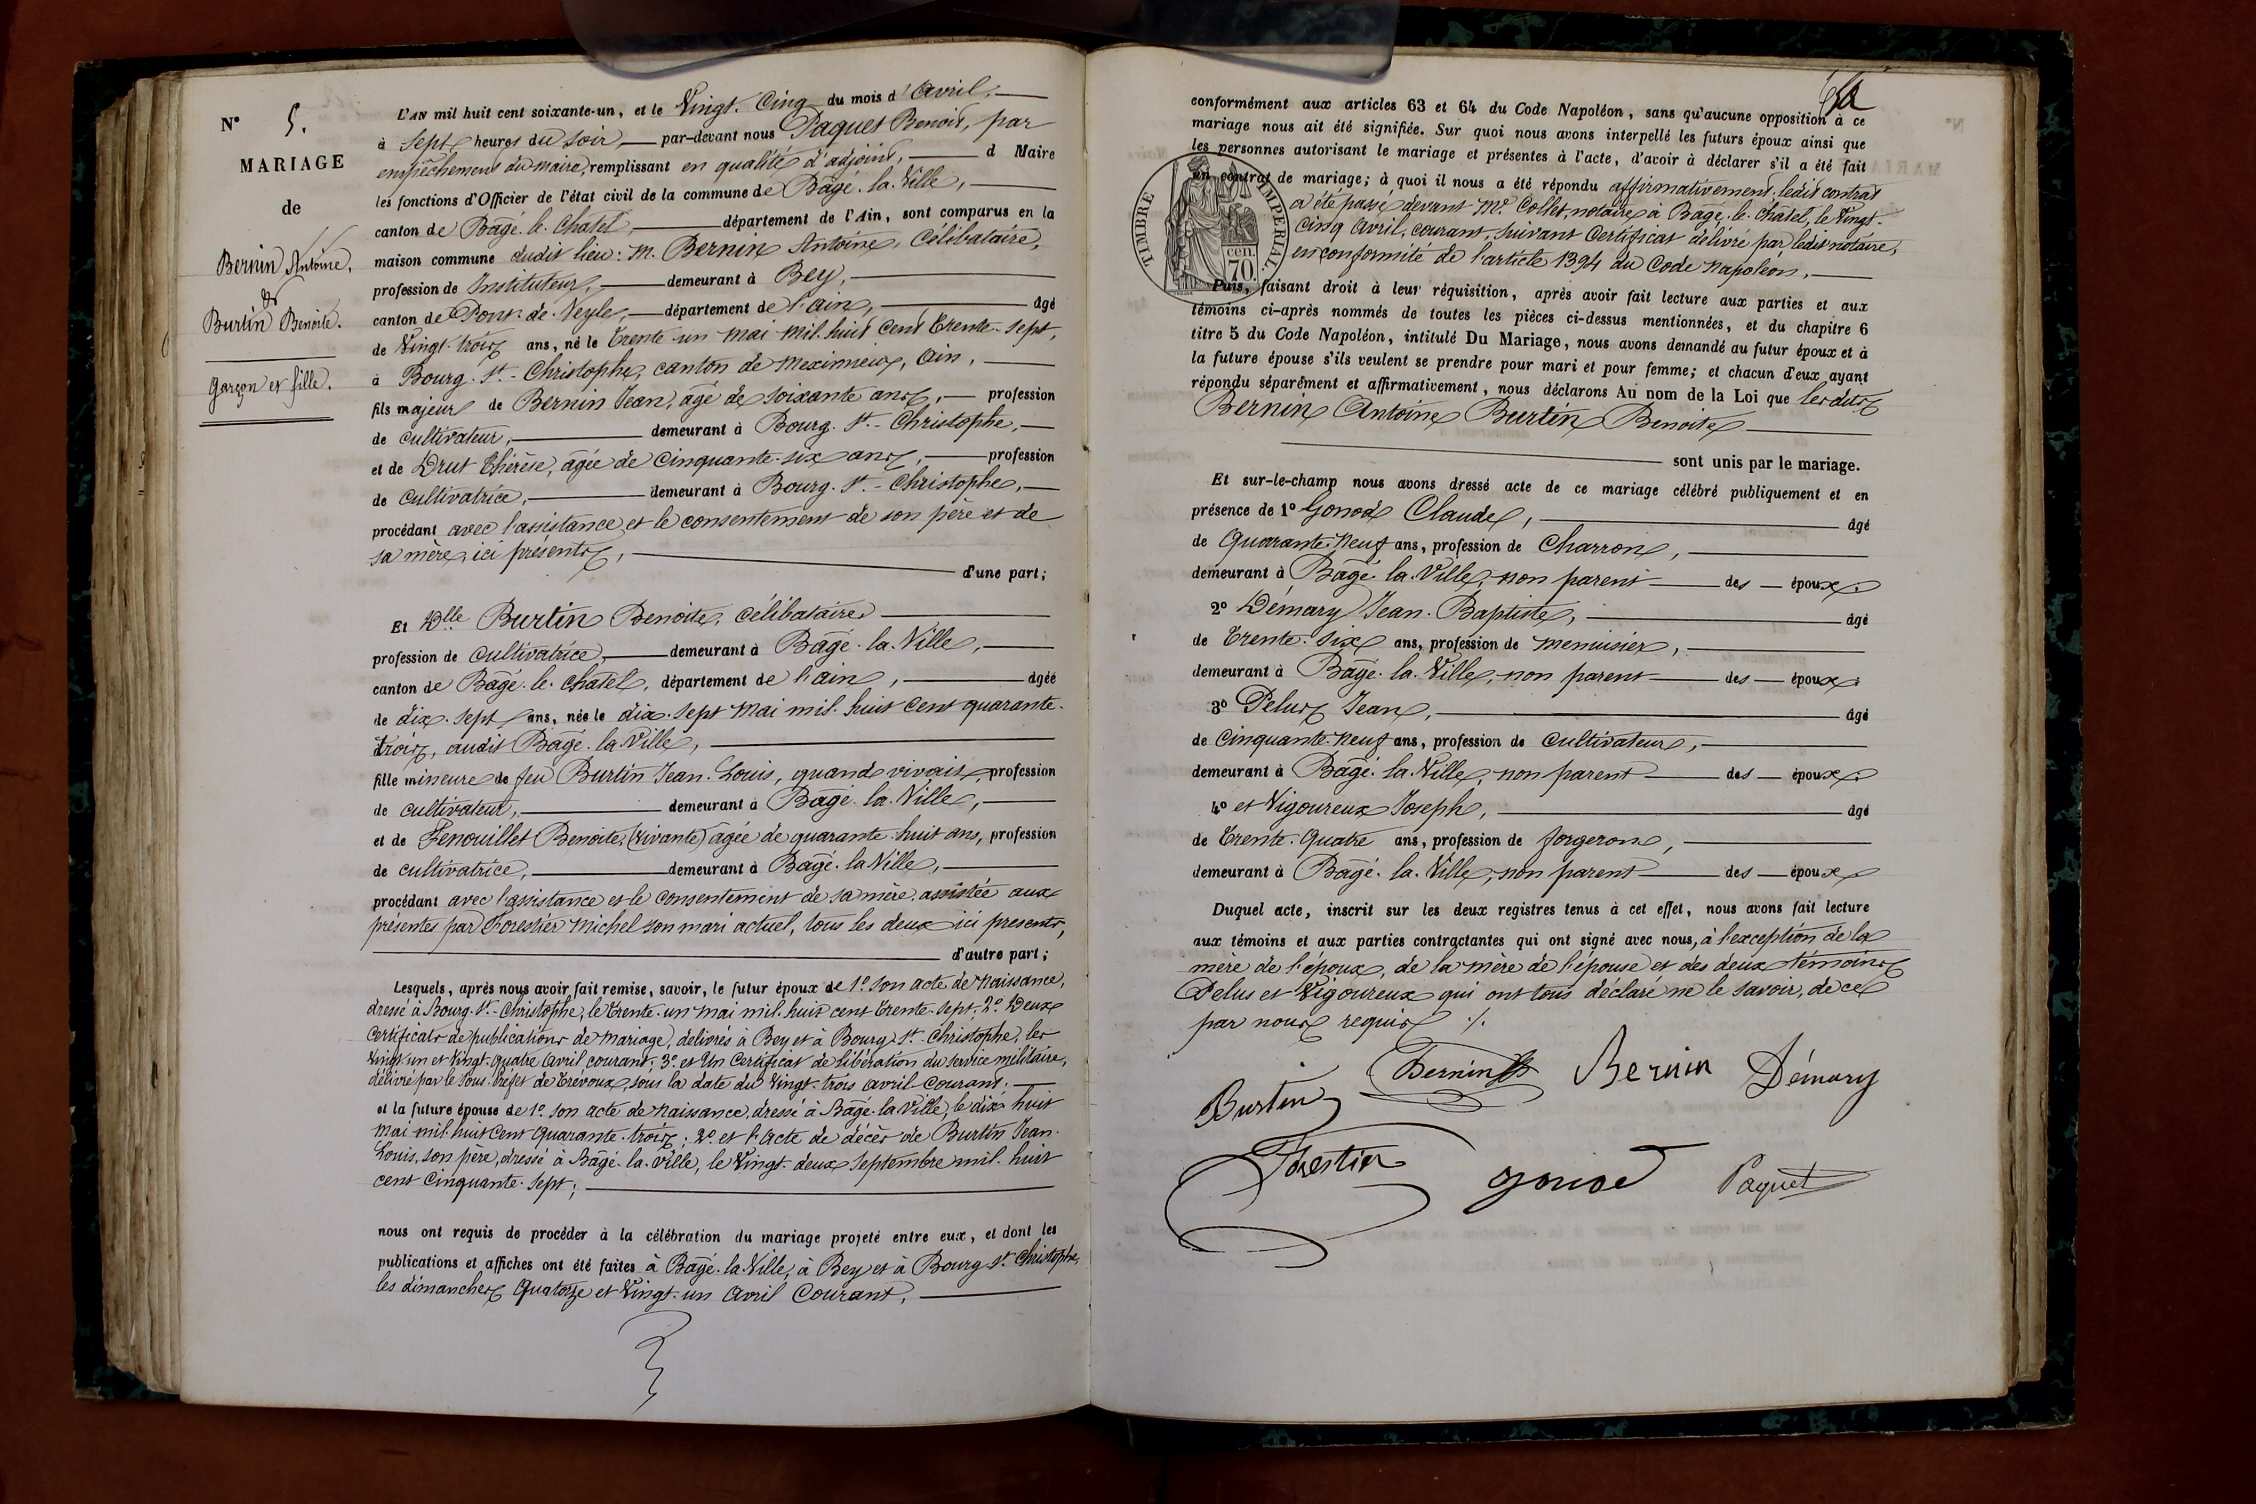 N° 5.
MARIAGE
de
Bernin Antoine,
&
Burtin Benoite.
garçon et fille.
L'AN mil huit cent soixante-un, et le Vingt-Cinq du mois d'Avril,
à Sept heures du Soir, par-devant nous Paquet Benoit, par
empêchement du maire, remplissant en qualité d'adjoint, d Maire
les fonctions d'Officier de l'état civil de la commune de Bâgé-la-Ville,
canton de Bâgé-le-Châtel, département de l'Ain, sont comparus en la
maison commune dudit lieu: M. Bernin Antoine, Célibataire,
profession de Instituteur, demeurant à Bey,
canton de Pont-de-Veyle, département de l'ain, âgé
de Vingt-trois ans, né le trente-un mai mil-huit cent trente-sept,
à Bourg-St-Christophe, canton de Meximieux, Ain,
fils majeur de Bernin Jean, âgé de soixante ans, profession
de cultivateur, demeurant à Bourg-St-Christophe,
et de Drut Thérèse, âgée de Cinquante-six ans, profession
de cultivatrice, demeurant à Bourg-St-Christophe,
procédant avec l'assistance et le consentement de son père et de
sa mère, ici présents,
d'une part;
Et Dlle Burtin Benoite, célibataire
profession de cultivatrice, demeurant à Bâgé-la-Ville,
canton de Bâgé-le-chatel, département de l'ain, âgée
de dix-sept ans, née le dix-sept mai mil-huit cent quarante-
trois, audit Bâgé-la-Ville,
fille mineure de feu Burtin Jean-Louis, quand vivait, profession
de cultivateur, demeurant à Bâgé-la-Ville,
et de Fenouillet Benoite, (vivante) agée de quarante-huit ans, profession
de cultivatrice, demeurant à Bagé-la-Ville,
procédant avec l'assistance et le consentement de sa mère, assistée aux
présentes par Forestier Michel son mari actuel, tous les deux ici présents,
d'autre part;
Lesquels, après nous avoir fait remise, savoir, le futur époux de 1° Son acte de Naissance,
dressé à Bourg-St-Christophe, le trente-un mai mil-huit cent trente-sept; 2° Deux
Certificats de publications de mariage, délivrés à Bey et à Bourg-St-Christophe, les
Vingt-un et Vingt-quatre Avril courant; 3° et Un Certificat de libération du service militaire,
délivré par le Sous-Préfet de Trévoux, sous la date du Vingt-trois avril courant.
et la future épouse de 1° son acte de naissance, dressé à Bâgé-la-Ville, le dix-huit
mai mil-huit cent quarante-trois; 2° et l'acte de décès de Burtin Jean-
Louis, son père, dressé à Bâgé-la-Ville, le Vingt-deux septembre mil-huit
cent Cinquante-sept;
nous ont requis de procéder à la célébration du mariage projeté entre eux, et dont les
publications et affiches ont été faites à Bâgé-la-Ville, à Bey et à Bourg St Christophe,
les dimanches Quatorze et Vingt-un Avril Courant,
conformément aux articles 63 et 64 du Code Napoléon, sans qu'aucune opposition à ce
mariage nous ait été signifiée. Sur quoi nous avons interpellé les futurs époux ainsi que
les personnes autorisant le mariage et présentes à l'acte, d'avoir à déclarer s'il a été fait
un contrat de mariage; à quoi il nous a été répondu affirmativement. ledit contrat
a été passé devant Me Collet, notaire à Bâgé-le-Châtel, le Vingt-
Cinq Avril, courant, suivant Certificat délivré par ledit notaire,
en conformité de l'article 1394 du Code Napoléon,
TIMBRE IMPERIAL.
70 cen.
Puis, faisant droit à leur réquisition, après avoir fait lecture aux parties et aux
témoins ci-après nommés de toutes les pièces ci-dessus mentionnées, et du chapitre 6
titre 5 du Code Napoléon, intitulé Du Mariage, nous avons demandé au futur époux et à
la future épouse s'ils veulent se prendre pour mari et pour femme; et chacun d'eux ayant
répondu séparément et affirmativement, nous déclarons Au nom de la Loi que lesdits
Bernin Antoine Burtin Benoite
sont unis par le mariage.
Et sur-le-champ nous avons dressé acte de ce mariage célébré publiquement et en
présence de 1° Gonod Claude, âgé
de Quarante-Neuf ans, profession de Charron,
demeurant à Bâgé-la-Ville, non parent des époux.
2° Démary Jean-Baptiste, âgé
de Trente-six ans, profession de menuisier,
demeurant à Bâgé-la-Ville, non parent des époux.
3° Pelus Jean, âgé
de Cinquante-Neuf ans, profession de Cultivateur,
demeurant à Bâgé-la-Ville, non parent des époux.
4° et Vigoureux Joseph, âgé
de Trente-Quatre ans, profession de forgeron,
demeurant à Bâgé-la-Ville, non parent des époux.
Duquel acte, inscrit sur les deux registres tenus à cet effet, nous avons fait lecture
aux témoins et aux parties contractantes qui ont signé avec nous, à l'exception de la
mère de l'époux, de la mère de l'épouse et des deux témoins
Pelus et Vigoureux qui ont tous déclaré ne le savoir, de ce
par nous requis ./.
Bernin Bernin Démary
Burtin
Forestier gonod Paquet